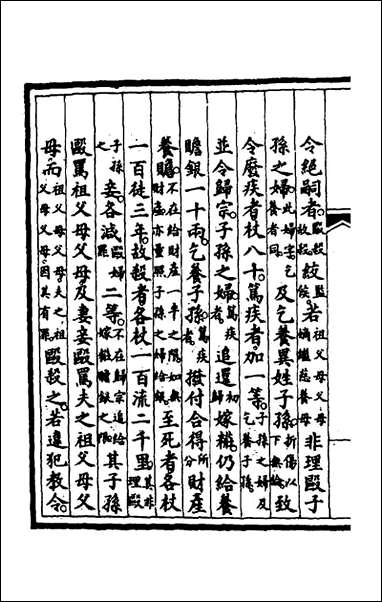 令絕嗣者。毆殺監故殺候絞。若祖父母父母嫡繼慈養母非理毆子
孫之婦。此婦字乞養者同。及乞養異姓子孫。折傷以下無論。致
令廢疾者杖八十。篤疾者。加一等。子孫之婦及乞養子孫。
並令歸宗。子孫之婦篤疾者。追還初歸嫁粧。仍給養
贍銀一十兩。乞養子孫篤疾者。撥付合得所分財產
養贍。不在給財產一半之限如無財產亦量照子孫之婦給銀。至死者各杖
一百徒三年。故殺者各杖一百流二千里。其非理毆
子孫之妾。各減毆婦罪二等。不在歸宗追給嫁粧贍銀之限其子孫
毆罵祖父母父母。及妻妾毆罵夫之祖父母父
母。而祖父母父母夫之祖父母父母因其有罪毆殺之。若違犯教令。